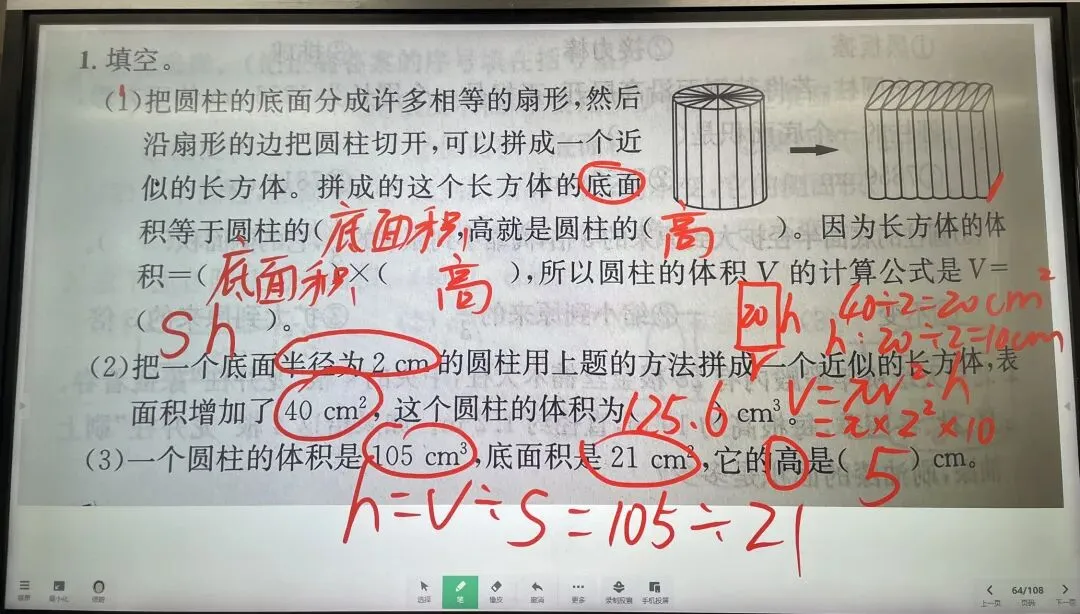 1. 填空。
(1)把圆柱的底面分成许多相等的扇形,然后
沿扇形的边把圆柱切开,可以拼成一个近
似的长方体。拼成的这个长方体的底面
积等于圆柱的(底面积),高就是圆柱的(高)。因为长方体的体
积=(底面积)×(高),所以圆柱的体积 V 的计算公式是 V=
(Sh)。
20 h 40÷2=20cm²
h:20÷2=10cm
(2)把一个底面半径为 2 cm 的圆柱用上题的方法拼成一个近似的长方体,表
面积增加了 40 cm²,这个圆柱的体积为(125.6)cm³。
V=πr²·h
=π×2²×10
(3)一个圆柱的体积是 105 cm³,底面积是 21 cm²,它的高是(5)cm。
h=V÷S=105÷21
选择 笔 橡皮 撤消 更多 录制胶囊 手机投屏
上一页 64/108 页码 下一页